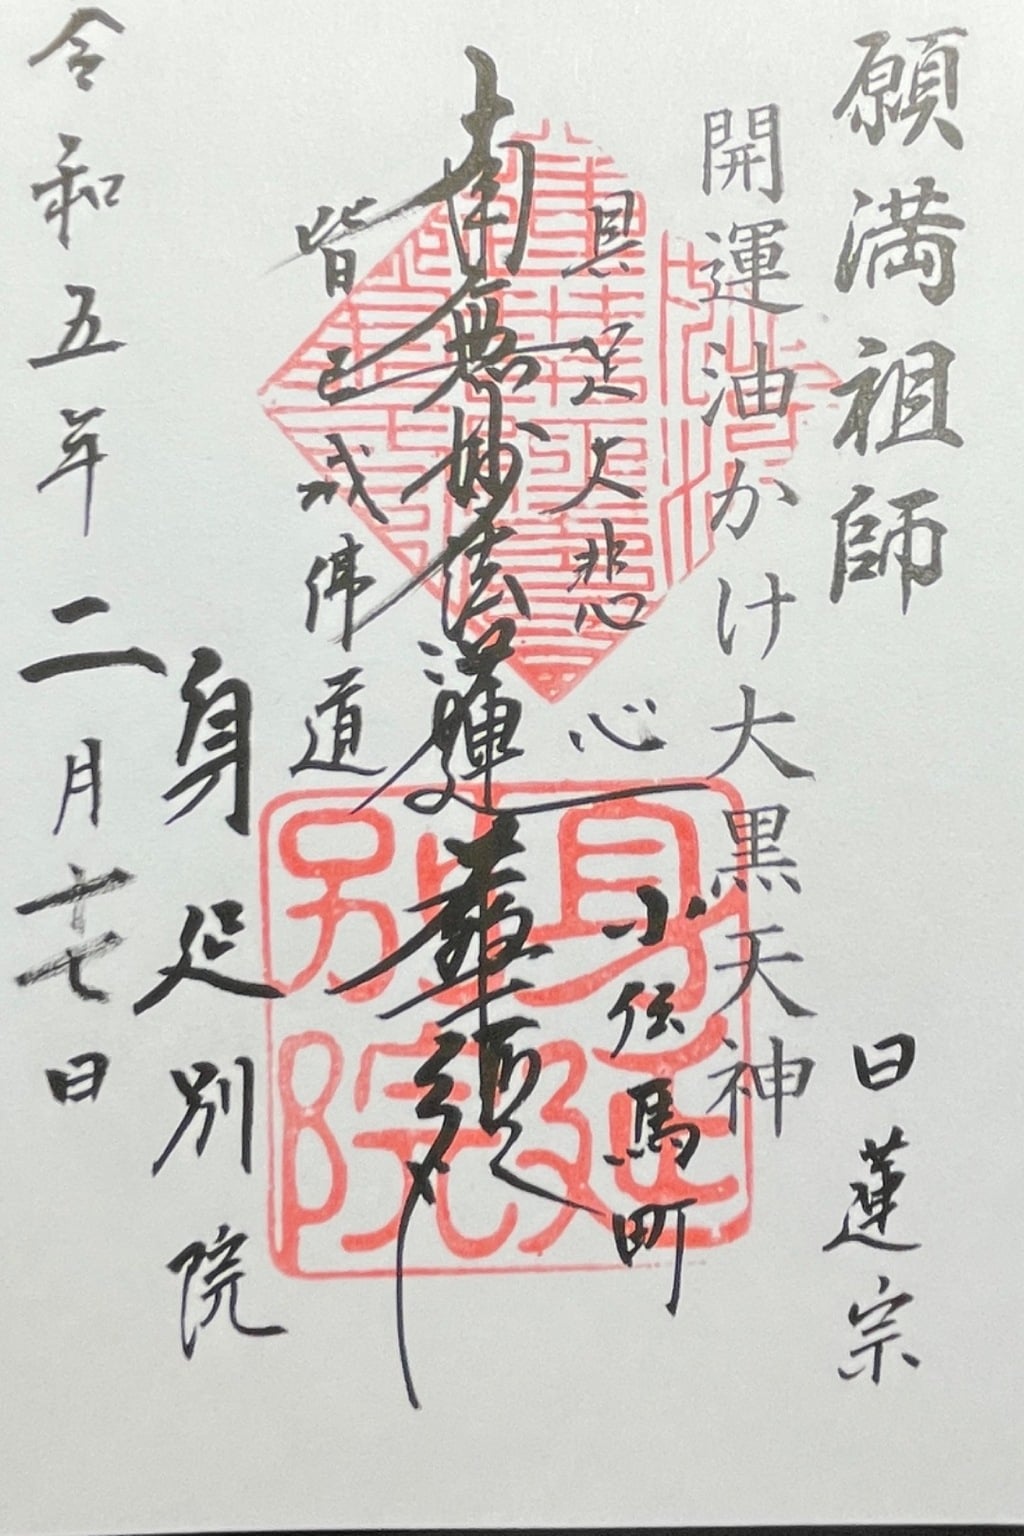 願満祖師
日蓮宗
開運油かけ大黒天神
小伝馬町
具足大悲心
南無妙法蓮華経
皆已成佛道
身延別院
令和五年二月十七日
身延別院